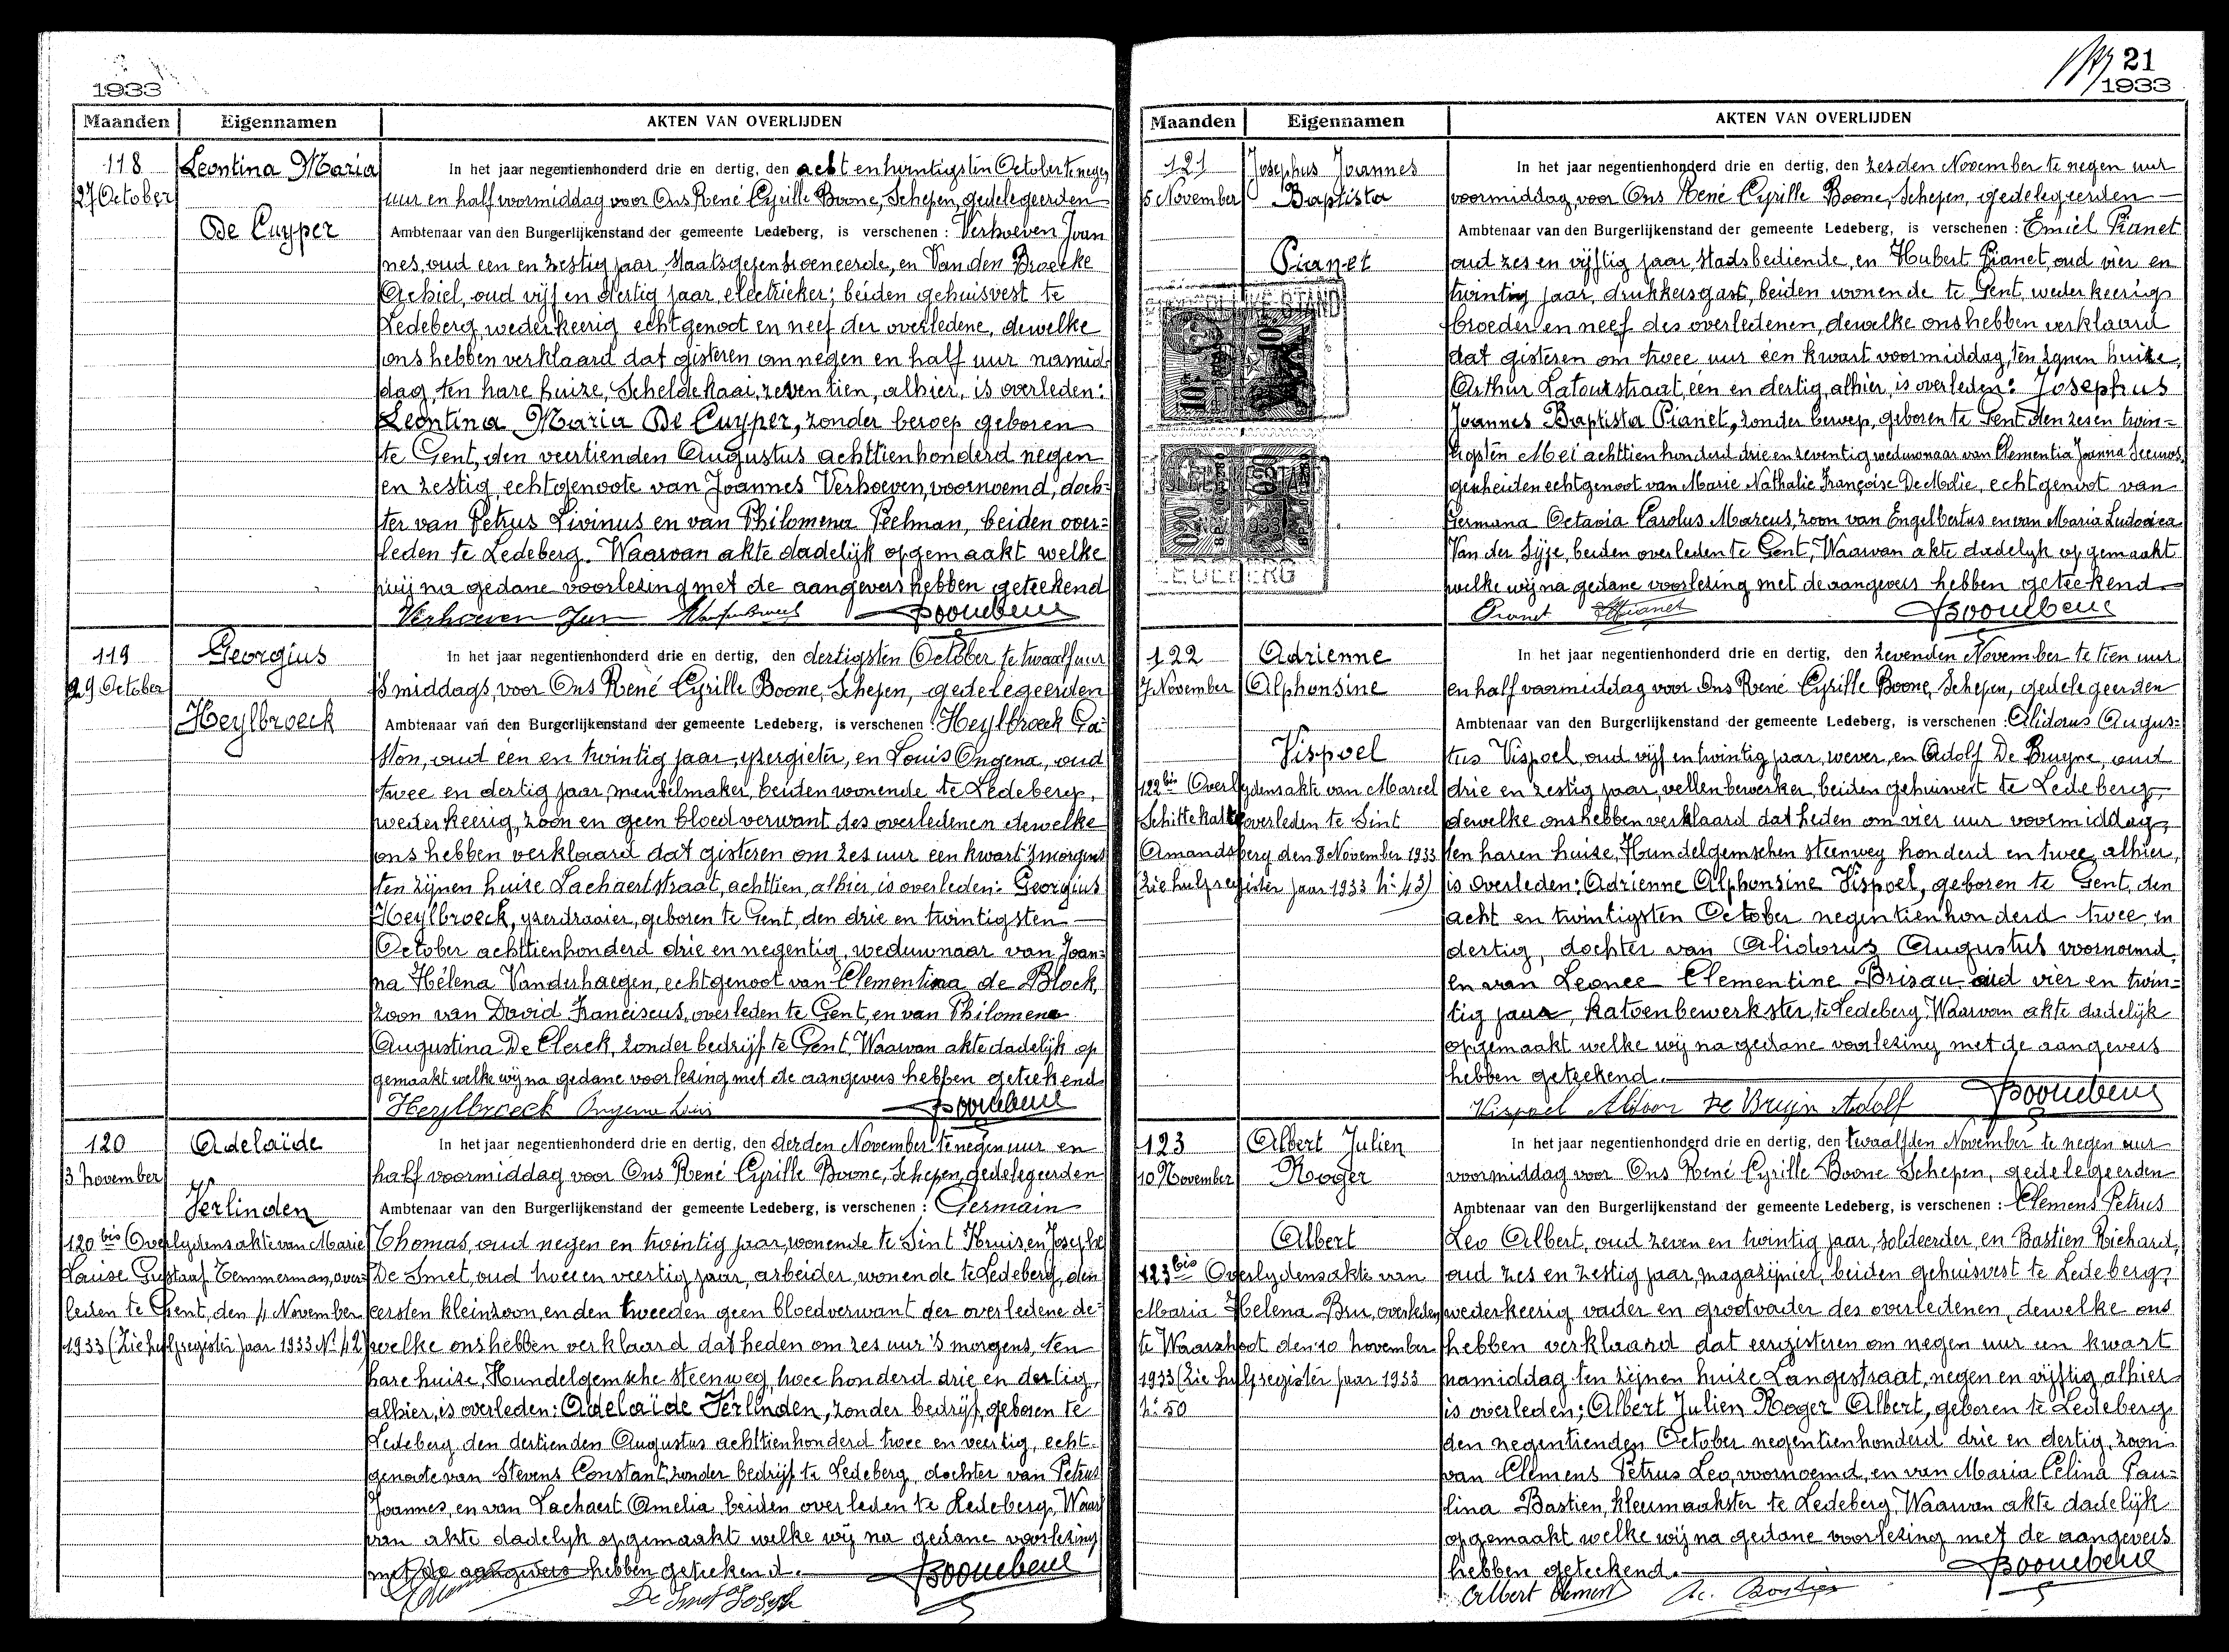 1933
Maanden Eigennamen AKTEN VAN OVERLIJDEN
118
27 October
Leontina Maria
De Cuyper
In het jaar negentienhonderd drie en dertig, den acht en twintigsten October te negen
uur en half voormiddag voor Ons René Cyrille Boone, Schepen, gedelegeerden
Ambtenaar van den Burgerlijkenstand der gemeente Ledeberg, is verschenen : Verhoeven Joan
nes, oud een en zestig jaar, Staatsgepensioeneerde, en Van den Broecke
Achiel, oud vijf en dertig jaar, electrieker; beiden gehuisvest te
Ledeberg, wederkeerig echtgenoot en neef der overledene, dewelke
ons hebben verklaard dat gisteren om negen en half uur namid-
dag, ten hare huize, Scheldekaai, zeventien, alhier, is overleden:
Leontina Maria De Cuyper, zonder beroep geboren
te Gent, den veertienden Augustus achttienhonderd negen
en zestig, echtgenoote van Joannes Verhoeven, voornoemd, doch=
ter van Petrus Livinus en van Philomena Peelman, beiden over=
leden te Ledeberg. Waarvan akte dadelijk opgemaakt welke
wij na gedane voorlezing met de aangevers hebben geteekend
Verhoeven Jan
119
29 October
Georgius
Heylbroeck
In het jaar negentienhonderd drie en dertig, den dertigsten October te twaalf uur
's middags, voor Ons René Cyrille Boone, Schepen, gedelegeerden
Ambtenaar van den Burgerlijkenstand der gemeente Ledeberg, is verschenen : Heylbroeck Ga=
ston, oud een en twintig jaar, yzergieter, en Louis Ongena, oud
twee en dertig jaar, meubelmaker, beiden wonende te Ledeberg,
wederkeerig, zoon en geen bloedverwant des overledenen dewelke
ons hebben verklaard dat gisteren om zes uur een kwart 's morgens
ten zijnen huize Lachaertstraat, achttien, alhier, is overleden: Georgius
Heylbroeck, yzerdraaier, geboren te Gent, den drie en twintigsten
October achttienhonderd drie en negentig, weduwnaar van Joan=
na Hélena Vanderhaegen, echtgenoot van Clementina de Block,
zoon van David Franciscus, overleden te Gent, en van Philomena
Augustina De Clerck, zonder bedrijf te Gent. Waarvan akte dadelijk op
gemaakt welke wij na gedane voorlezing met de aangevers hebben geteekend
Heylbroeck Ongena Louis
120
3 november
Adelaïde
Verlinden
120 bis Overlydensakte van Marie
Louise Gustaaf Temmerman, over=
leden te Gent, den 4 November
1933 (Zie hulpregister jaar 1933 No 42)
In het jaar negentienhonderd drie en dertig, den derden November te negen uur en
half voormiddag voor Ons René Cyrille Boone, Schepen, gedelegeerden
Ambtenaar van den Burgerlijkenstand der gemeente Ledeberg, is verschenen : Germain
Thomas, oud negen en twintig jaar, wonende te Sint Kruis, en Josephe
De Smet, oud twee en veertig jaar, arbeider, wonende te Ledeberg, den
eersten kleinzoon, en den tweeden geen bloedverwant der overledene de=
welke ons hebben verklaard dat heden om zes uur 's morgens, ten
hare huize, Hundelgemsche steenweg, twee honderd drie en dertig,
alhier, is overleden: Adelaïde Verlinden, zonder bedrijf, geboren te
Ledeberg, den dertienden Augustus achttienhonderd twee en veertig, echt-
genoote van Stevens Constant, zonder bedrijf te Ledeberg, dochter van Petrus
Joannes, en van Lachaert Amelia, beiden overleden te Ledeberg, Waar
van akte dadelijk opgemaakt welke wij na gedane voorlezing
met de aangevers hebben geteekend.
De Smet Joseph
21
1933
Maanden Eigennamen AKTEN VAN OVERLIJDEN
121
5 November
Josephus Joannes
Baptista
Pianet
LEDEBERG
In het jaar negentienhonderd drie en dertig, den zesden November te negen uur
voormiddag, voor Ons René Cyrille Boone, Schepen, gedelegeerden
Ambtenaar van den Burgerlijkenstand der gemeente Ledeberg, is verschenen : Emiel Pianet
oud zes en vijftig jaar, Stadsbediende, en Hubert Pianet, oud vier en
twintig jaar, drukkersgast, beiden wonende te Gent, wederkeerig
broeder en neef des overledenen, dewelke ons hebben verklaard
dat gisteren om twee uur een kwart voormiddag, ten zynen huize,
Arthur Latourstraat, een en dertig, alhier, is overleden: Josephus
Joannes Baptista Pianet, zonder beroep, geboren te Gent den zes en twin=
tigsten Mei achttien honderd drie en zeventig, weduwnaar van Clementia Joanna Seeuws,
gescheiden echtgenoot van Marie Nathalie Françoise De Molie, echtgenoot van
Germana Octavia Carolus Marcus, zoon van Engelbertus en van Maria Ludovica
Van der Sype, beiden overleden te Gent. Waarvan akte dadelyk opgemaakt
welke wij na gedane voorlezing met de aangevers hebben geteekend
Pianet HPianet
122
7 November
Adrienne
Alphonsine
Vispoel
122 bis Overlydensakte van Marcel
Schittekatte overleden te Sint
Amandsberg den 8 November 1933
(Zie hulpregister jaar 1933 No 43)
In het jaar negentienhonderd drie en dertig, den zevenden November te tien uur
en half voormiddag voor Ons René Cyrille Boone, Schepen, gedelegeerden
Ambtenaar van den Burgerlijkenstand der gemeente Ledeberg, is verschenen : Alidorus Augus=
tus Vispoel, oud vijf en twintig jaar, wever, en Adolf De Bruyne, oud
drie en zestig jaar, vellenbewerker, beiden gehuisvest te Ledeberg,
dewelke ons hebben verklaard dat heden om vier uur voormiddag,
ten haren huize, Hundelgemschen steenweg honderd en twee, alhier,
is overleden: Adrienne Alphonsine Vispoel, geboren te Gent, den
acht en twintigsten October negentienhonderd twee en
dertig, dochter van Alidorus Augustus voornoemd,
en van Leonce Clementine Brisau, oud vier en twin=
tig jaar, katoenbewerkster, te Ledeberg. Waarvan akte dadelijk
opgemaakt welke wij na gedane voorlezing met de aangevers
hebben geteekend.
Vispoel Alidoor De Bruyn Adolf
123
10 November
Albert Julien
Roger
Albert
123 bis Overlydensakte van
Maria Helena Bru, overleden
te Waarschoot den 10 november
1933 (Zie hulpregister jaar 1933
No 50
In het jaar negentienhonderd drie en dertig, den twaalfden November te negen uur
voormiddag voor Ons René Cyrille Boone Schepen, gedelegeerden
Ambtenaar van den Burgerlijkenstand der gemeente Ledeberg, is verschenen : Clemens Petrus
Leo Albert, oud zeven en twintig jaar, soldeerder, en Bastien Richard,
oud zes en zestig jaar, magazijnier, beiden gehuisvest te Ledeberg,
wederkeerig vader en grootvader des overledenen, dewelke ons
hebben verklaard dat eergisteren om negen uur een kwart
namiddag ten zijnen huize Langestraat, negen en vijftig, alhier
is overleden; Albert Julien Roger Albert, geboren te Ledeberg
den negentienden October negentienhonderd drie en dertig, zoon
van Clemens Petrus Leo, voornoemd, en van Maria Celina Pau=
lina Bastien, kleermaakster te Ledeberg. Waarvan akte dadelijk
opgemaakt welke wij na gedane voorlezing met de aangevers
hebben geteekend.
Albert Clement